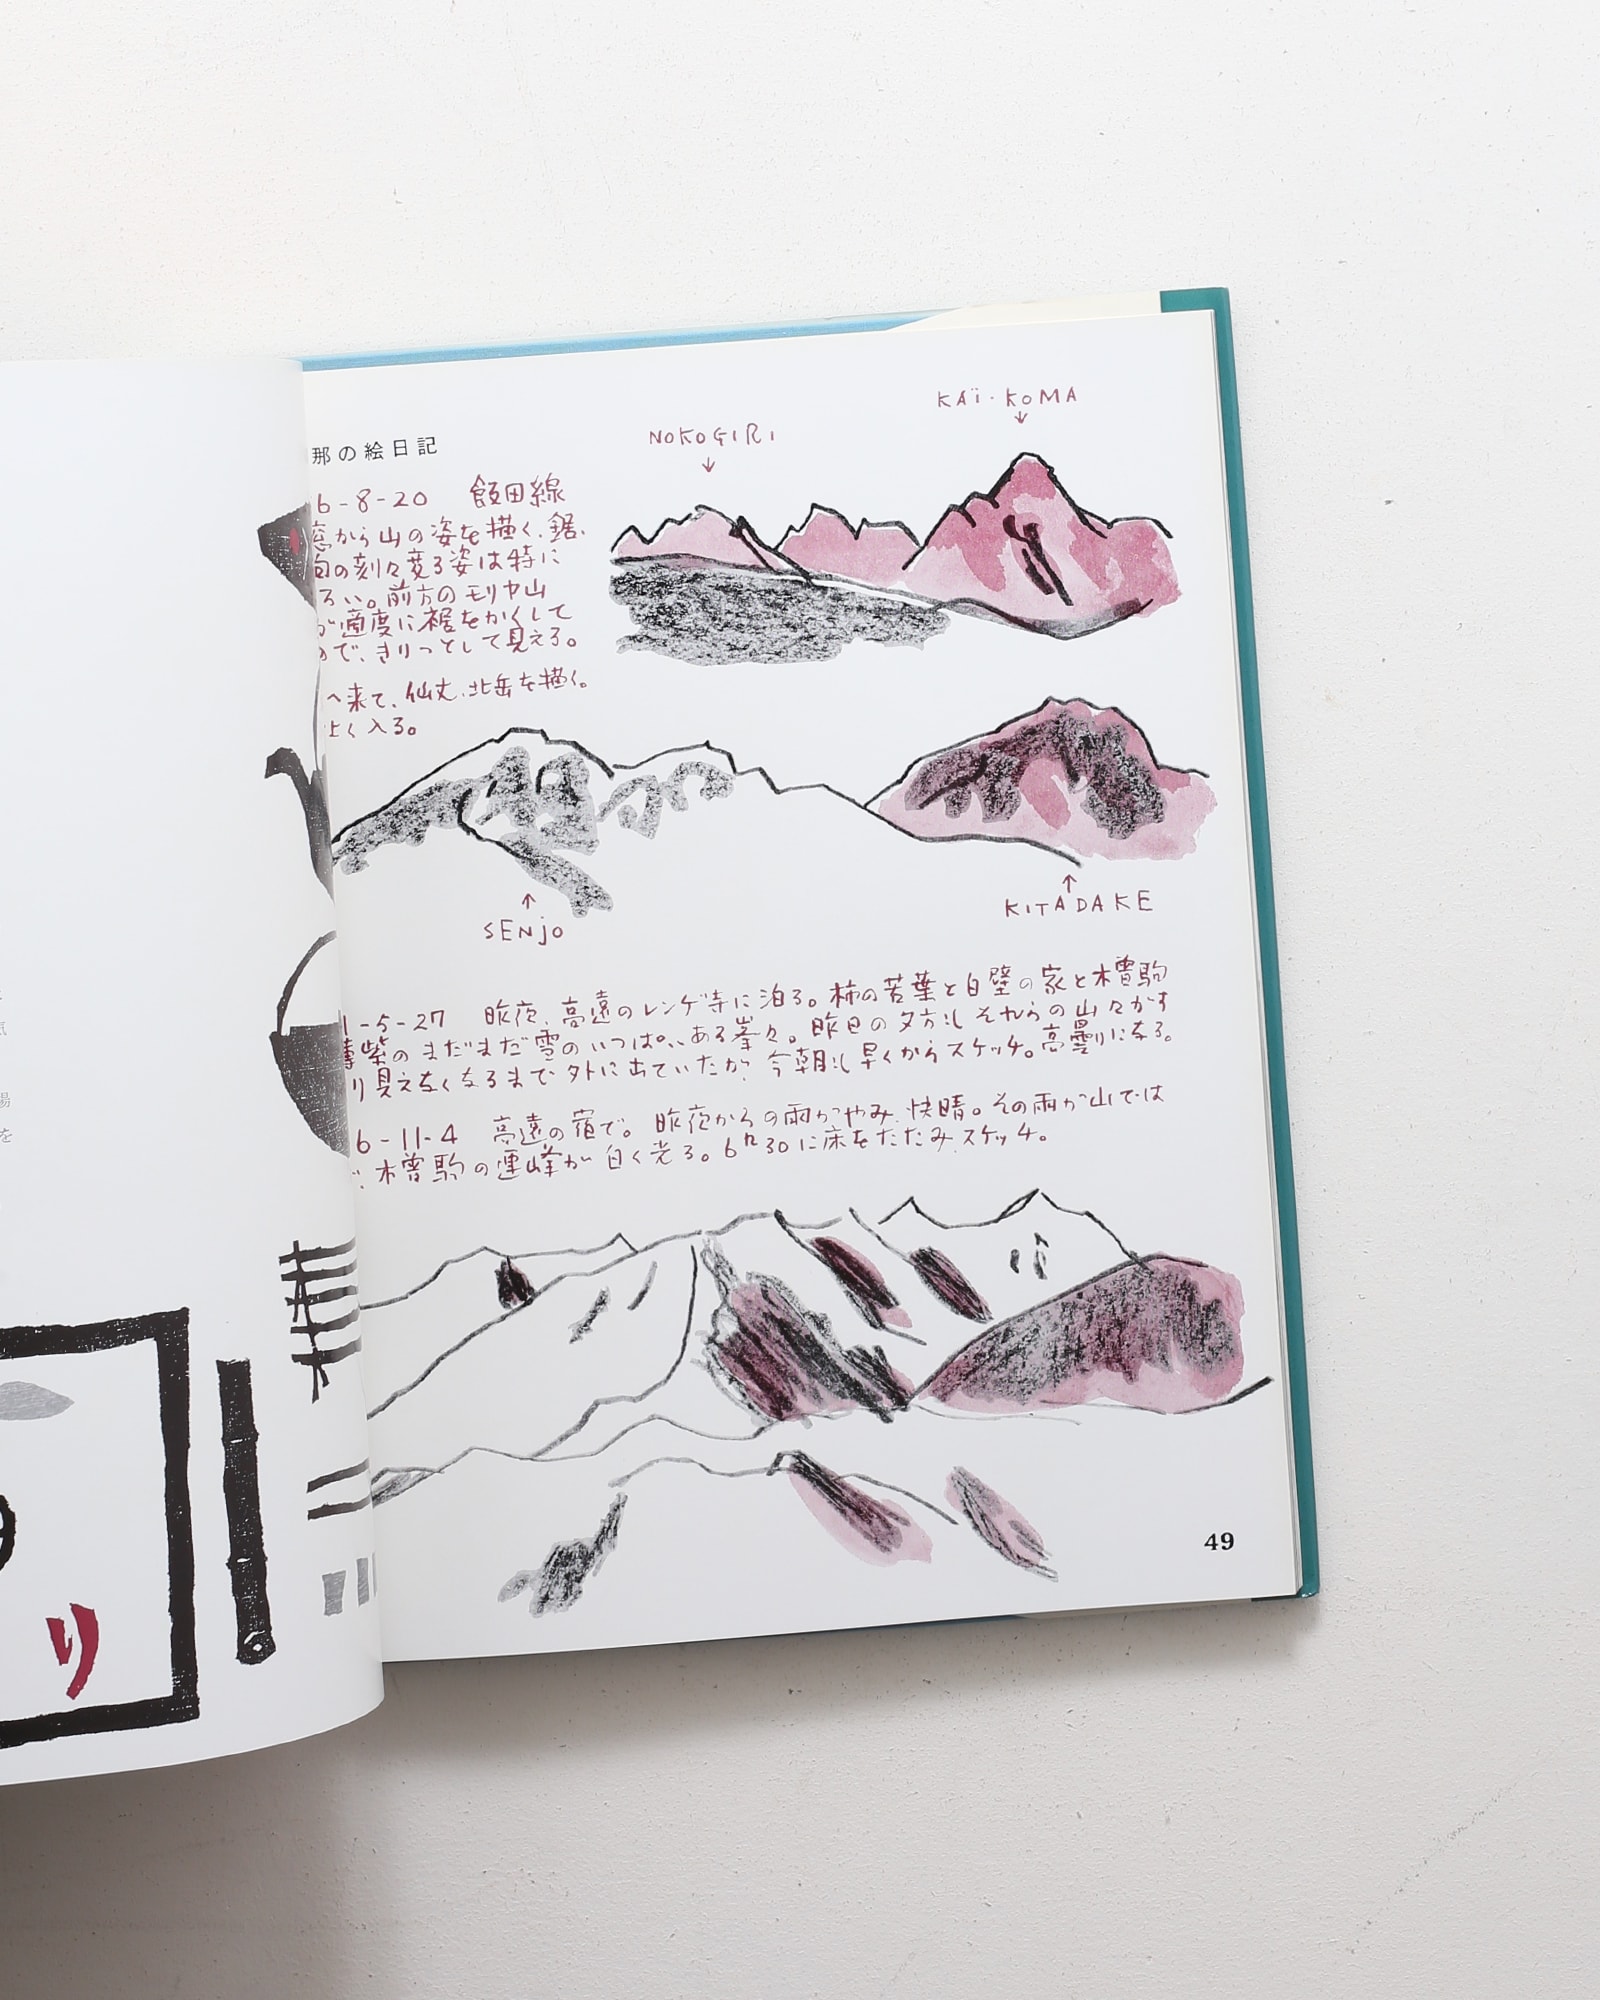 那の絵日記
NOKOGIRI
KAÏ・KOMA
6-8-20 飯田線
窓から山の姿を描く、鋸、
の刻々変る姿は特に
ろい。前方のモリヤ山
が適度に裾をかくして
ので、きりっとして見える。
へ来て、仙丈、北岳を描く。
よく入る。
SENJO
KITADAKE
1-5-27 昨夜、高遠のレンゲ寺に泊る。柿の若葉と白壁の家と木曽駒
薄紫のまだまだ雪のいっぱいある峯々。昨日の夕方もそれらの山々かす
り見えなくなるまで外に出ていたが、今朝も早くからスケッチ。高曇りになる。
6-11-4 高遠の宿で。昨夜からの雨がやみ、快晴。その雨が山では
で、木曽駒の連峰が白く光る。6時30に床をたたみ、スケッチ。
49
り